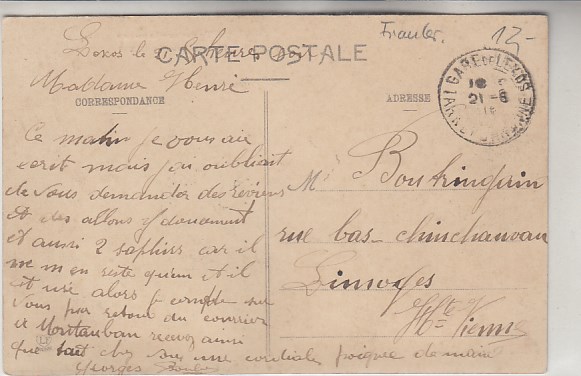 Lexos le 21
CARTE POSTALE
Madame Henri
CORRESPONDANCE
Ce matin je vous ai
ecrit mais j'ai oublié
de vous demander des
et des allons
et aussi 2 saphirs car il
ne m en reste qu'un et il
et usé alors je compte sur
vous par retour du courrier
a Montauban recevez ainsi
que tout chez vous une cordiale poignee de main
Georges
Frauler.
12-
GARE DE LEXOS
21-8
ADRESSE
Mr Boutringain
rue bas-chinchauvau
Limoges
Hte Vienne